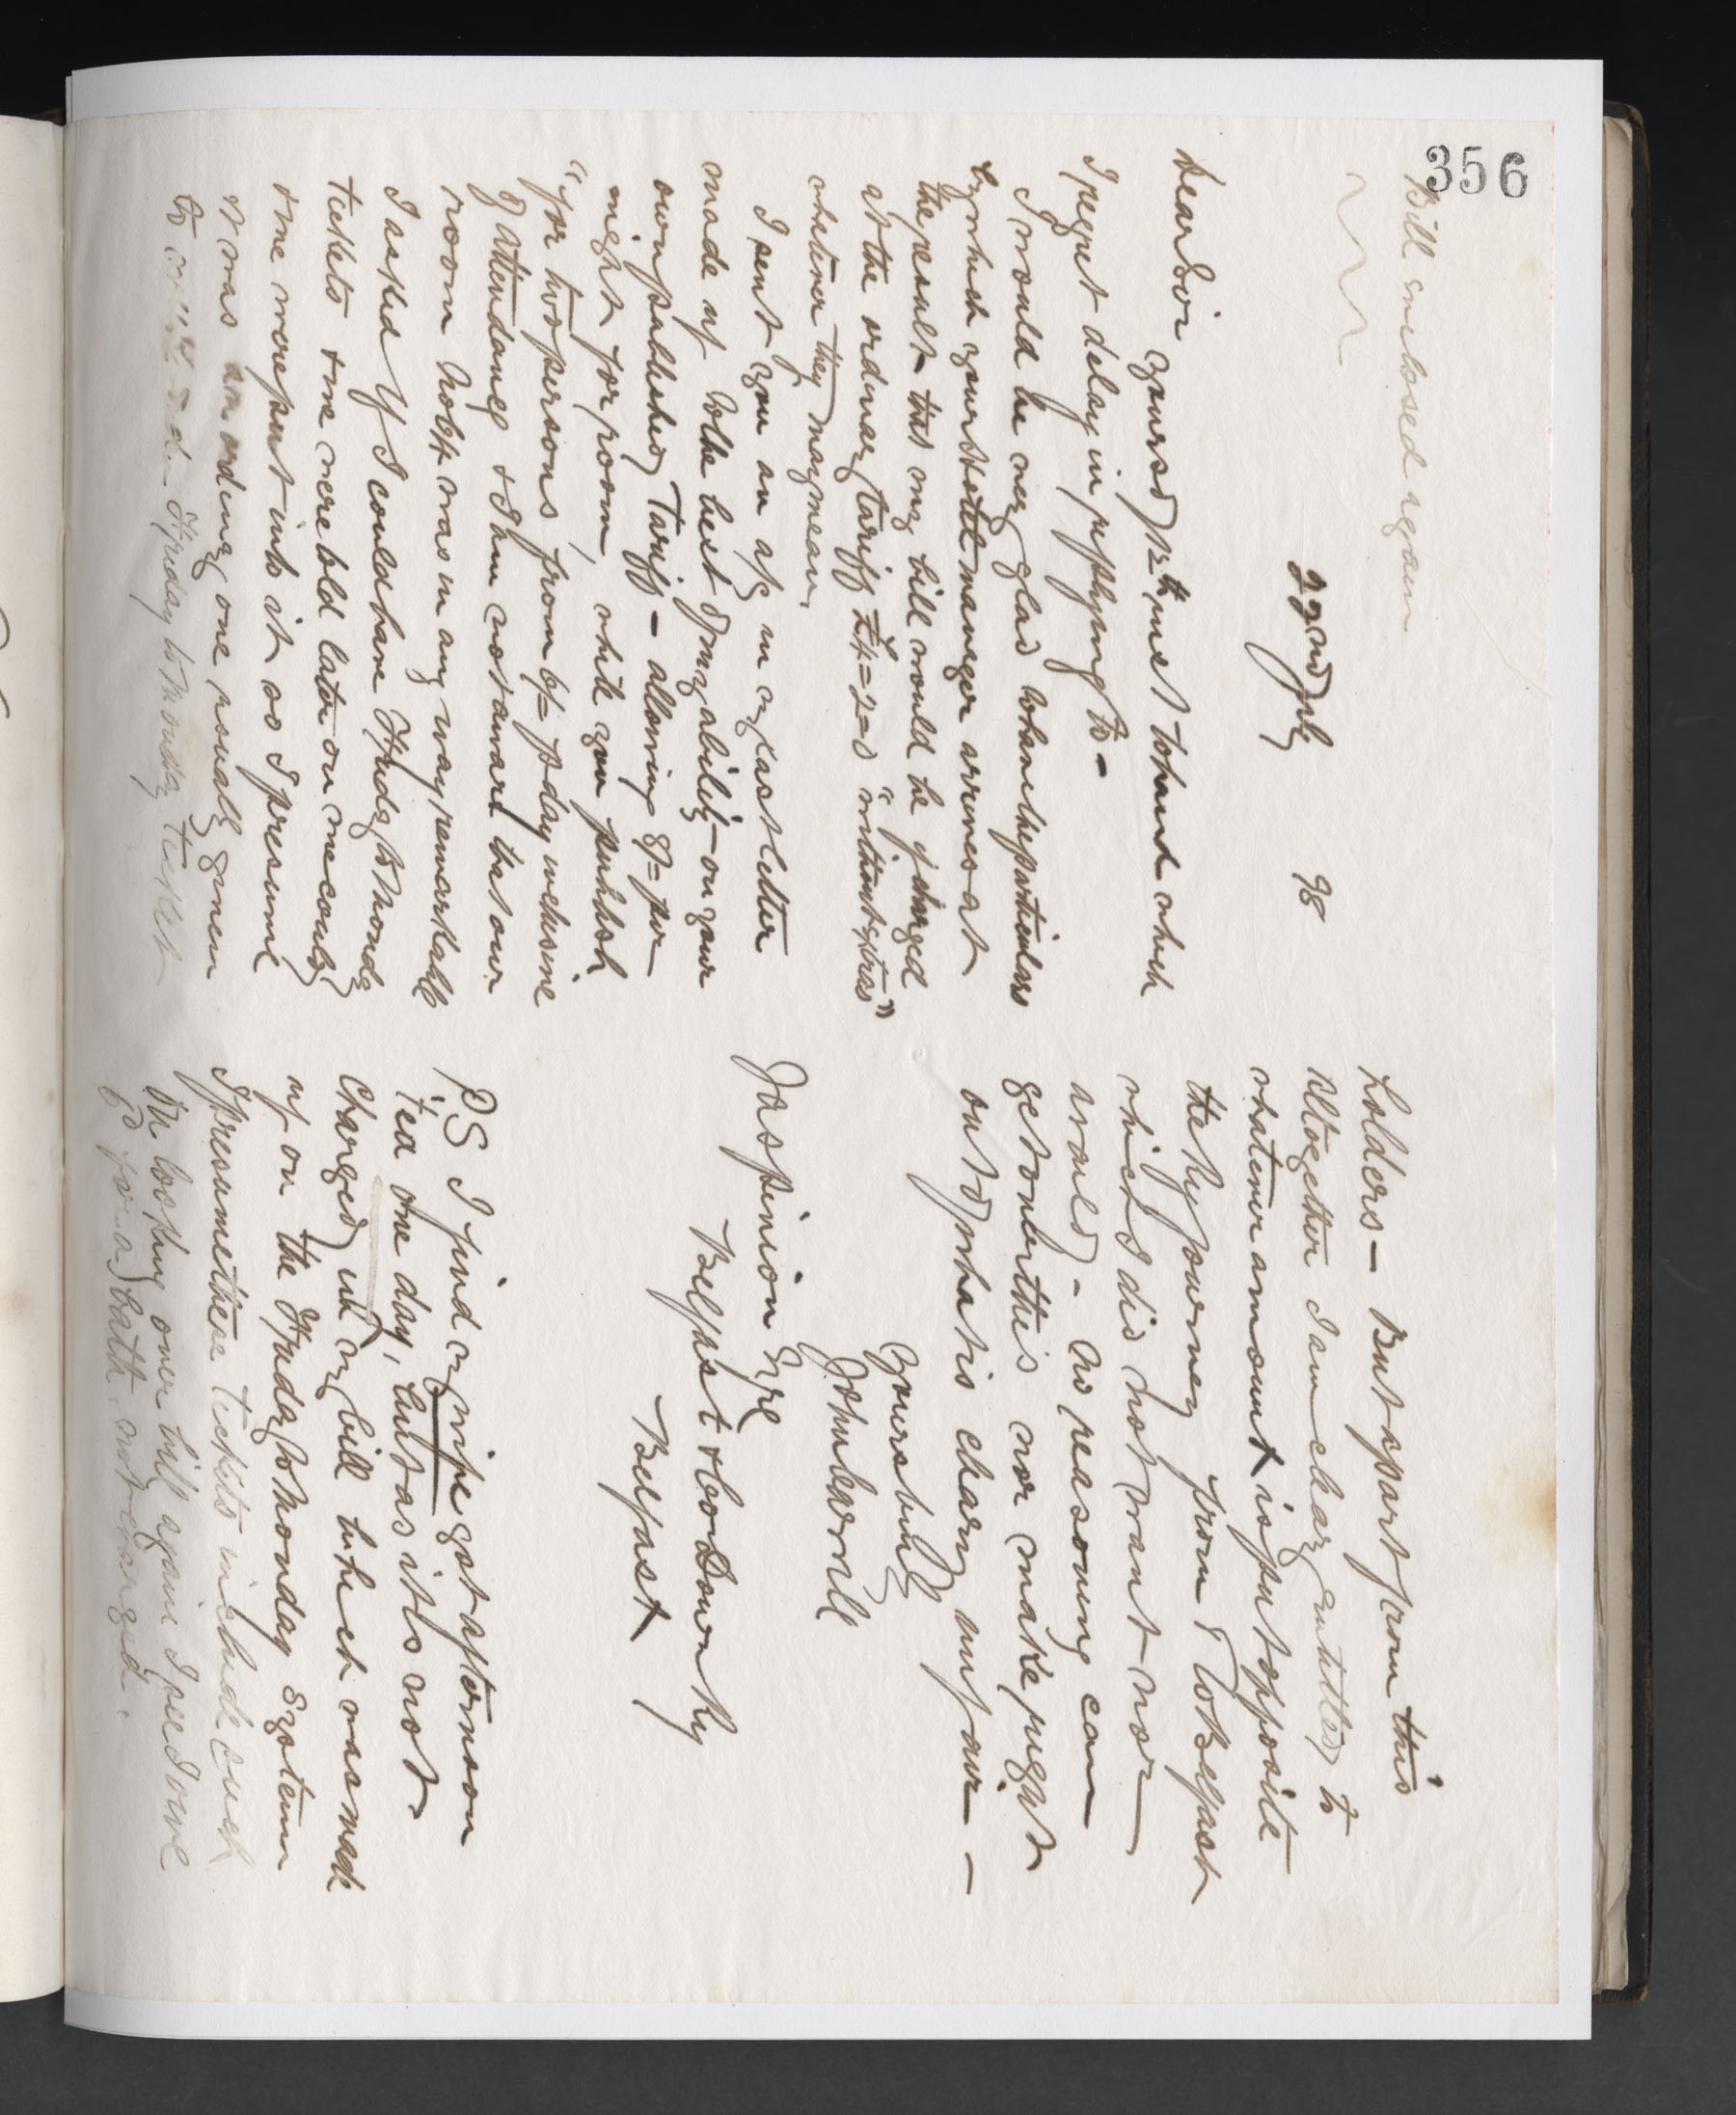 356
Bill enclosed again
22nd July 98
Dear Sir
Yours of 12th inst to hand which
I regret delay in replying to -
I would be very glad to have the particulars
by which your Hotel manager arrives at
the result that my bill would be if charged
at the ordinary tariff £4=2=0 "without extras"
whatever they may mean,
I sent you an a/c in my last letter
made up to the best of my ability - on your
own published Tariff - allowing 8/= per
night for room, while you publish
"for two persons from 6/= p day inclusive
of attendance & I am not aware that our
room No 64 was in any way remarkable
I asked if I could have Friday to Monday
tickets & we were told later on we could
& we were put into it so I presume
it was an ordinary one usually given
to Friday to Monday ticket
holders - But apart from this
altogether I am clearly entitled to
whatever amount is put opposite
the Ry journey from & to Belfast
which I did not want nor
avail of - No reasoning can
get over this nor make right
out of what is clearly unfair -
Yours truly
John Carroll
Jos Pinion Esqre
Belfast & Co Down Ry
Belfast
PS I find my wife got afternoon
tea one day, but as it is not
charged in my bill which was made
up on the Friday to Monday system
I presume these tickets include such
On looking over bill again I see I owe
for a bath not charged.